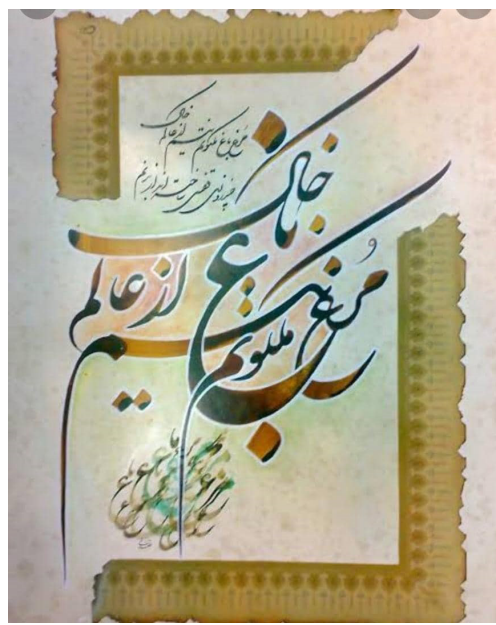 مرغ باغ ملکوتم نیم از عالم خاک
چند روزی قفسی ساخته اند از بدنم
مرغ باغ ملکوتم نیم از عالم خاک